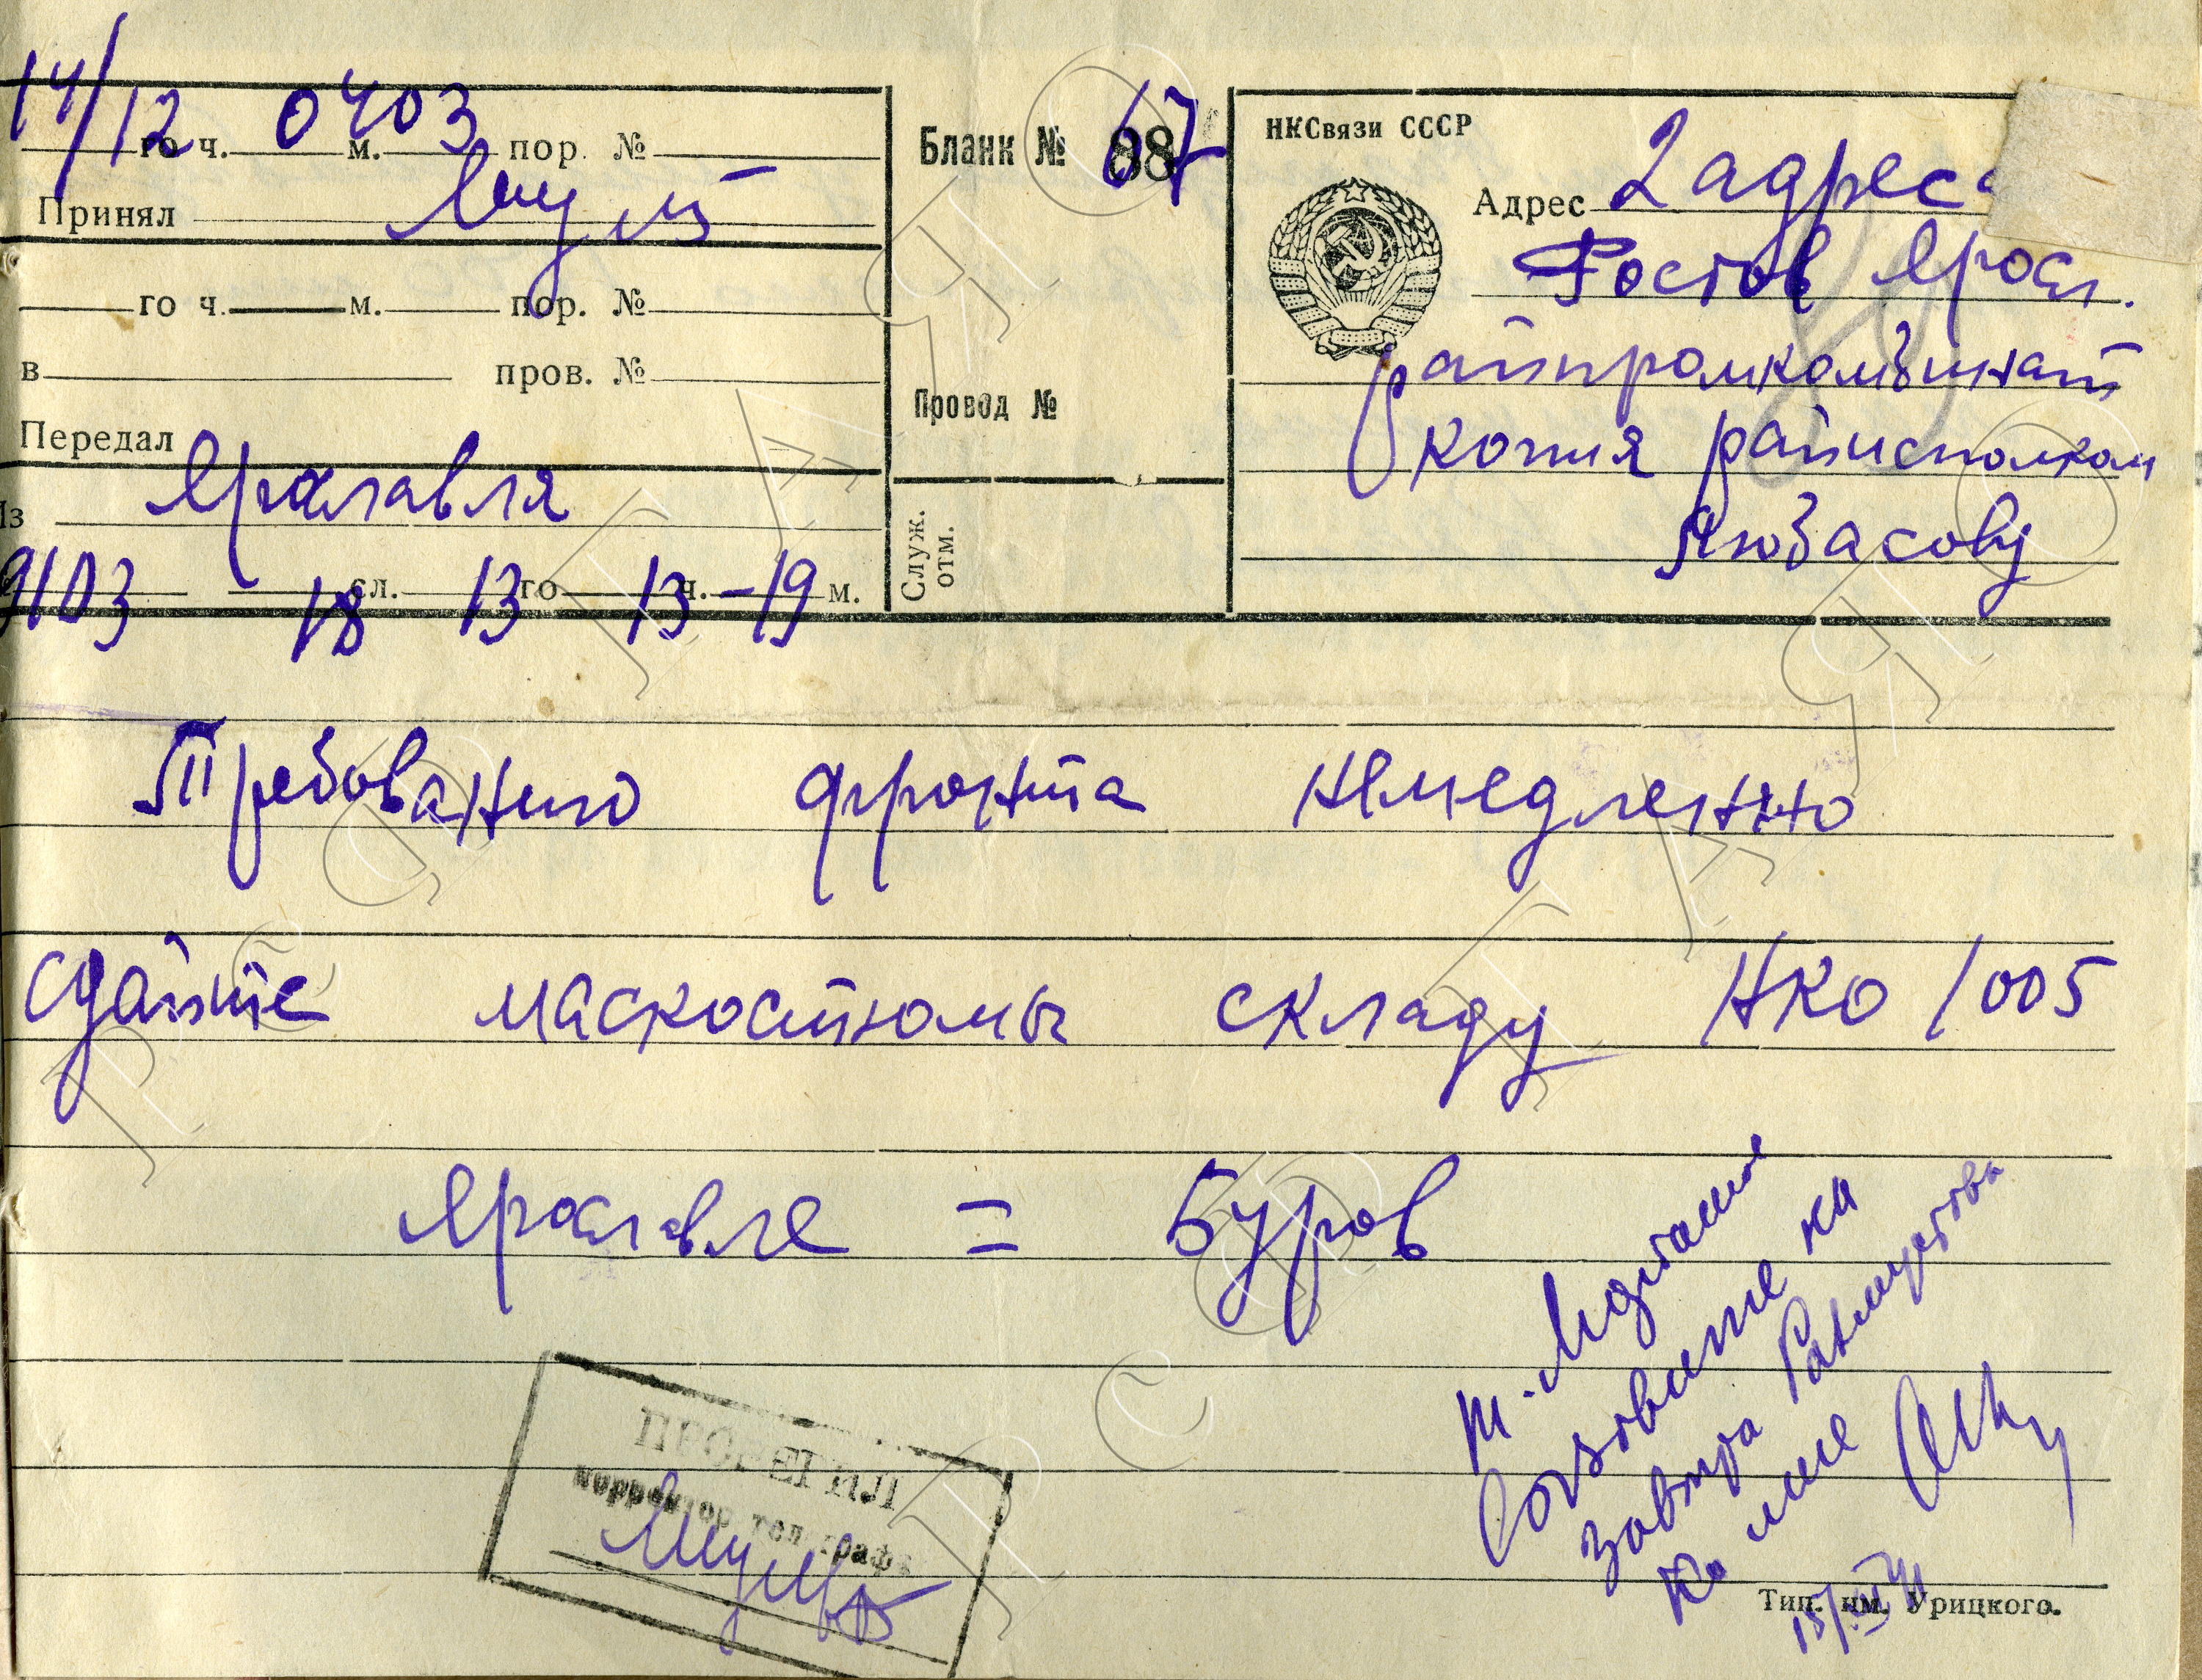 14/12 0403
го ч. м. пор. №
Принял
го ч. м. пор. №
в пров. №
Передал
Из Ярославля
9103 18 сл. 13 го 13 ч. -19 м.
Бланк № 67
Провод №
Служ. отм.
НКСвязи СССР
Адрес 2 адреса
Ростов Яросл.
райпромкомбинат
копия райисполком
Любасову
Требованию фронта немедленно
сдайте маскостюмы складу НКО 1005
Ярославле = Буров
т.
Созовите на
завтра
ко мне
15/XII 41
ПРОВЕРИЛ
корректор телеграфа
Тип. им. Урицкого.
РГАЯО